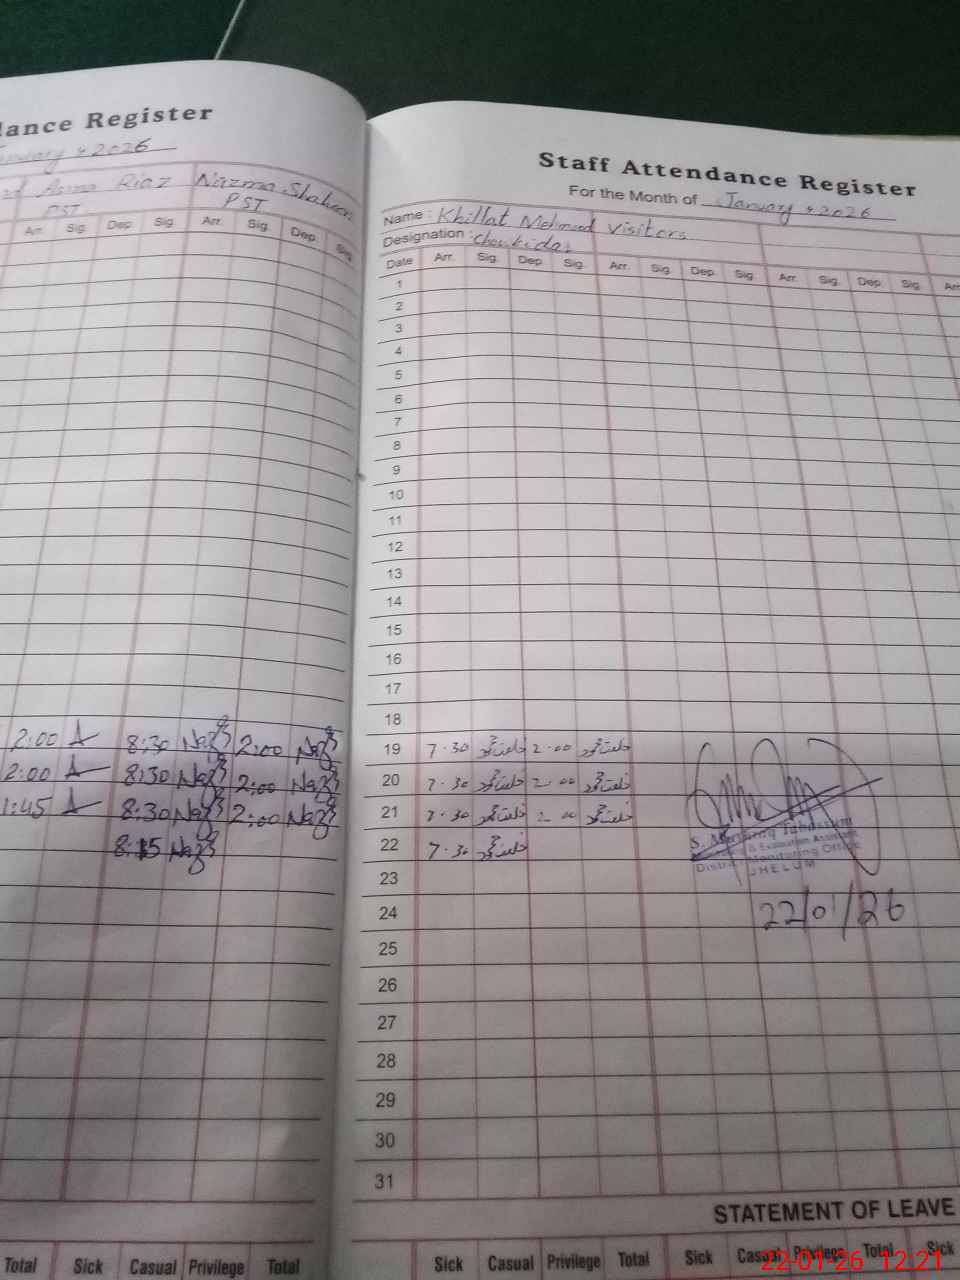 dance Register
January, 2026
Asma Riaz Nazma Shaheen
PST PST
Arr. Sig. Dep. Sig. Arr. Sig. Dep. Sig.
2:00 8:30 Naz 2:00 Naz
2:00 8:30 Naz 2:00 Naz
1:45 8:30 Naz 2:00 Naz
8:15 Naz
Total Sick Casual Privilege Total
Staff Attendance Register
For the Month of January, 2026
Name: Khillat Mehmood Visitors
Designation: Chowkidar
Date Arr. Sig. Dep. Sig. Arr. Sig. Dep. Sig. Arr. Sig. Dep. Sig. Arr
1
2
3
4
5
6
7
8
9
10
11
12
13
14
15
16
17
18
19 7.30 خلت محمود 2.00 خلت محمود
20 7.30 خلت محمود 2.00 خلت محمود
21 7.30 خلت محمود 2.00 خلت محمود
22 7.30 خلت محمود
S. Tabassum
& Evaluation Assistant
District Monitoring Office
JHELUM
23
24 22/01/26
25
26
27
28
29
30
31
STATEMENT OF LEAVE
Sick Casual Privilege Total Sick Casual Privilege Total Sick
22-01-26 12:21